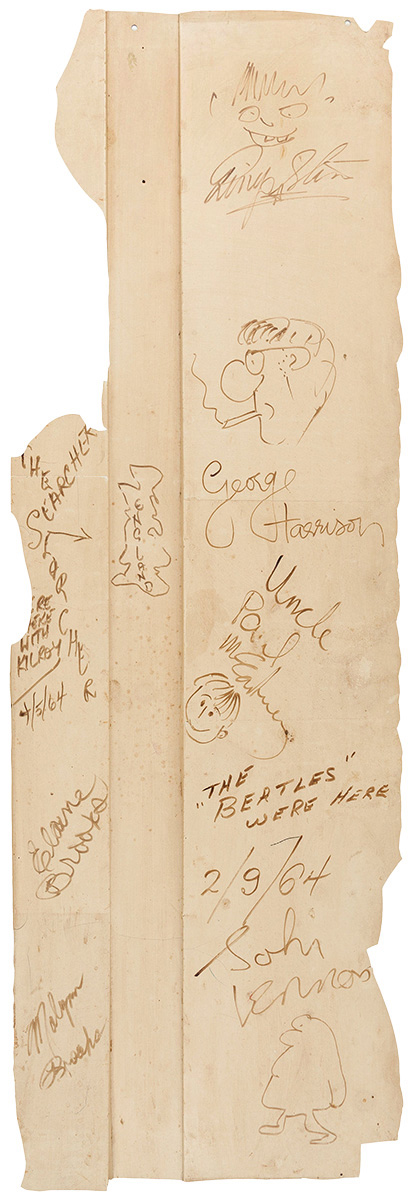 Ringo Starr
George
Harrison
Uncle
Paul
McCartney
"THE
BEATLES"
WERE HERE
2/9/64
John
Lennon
THE
SEARCHER
SEARCHER
WERE
HERE
WITH
KILROY
4/5/64
Elaine
Brooks
Malvyn
Brooks